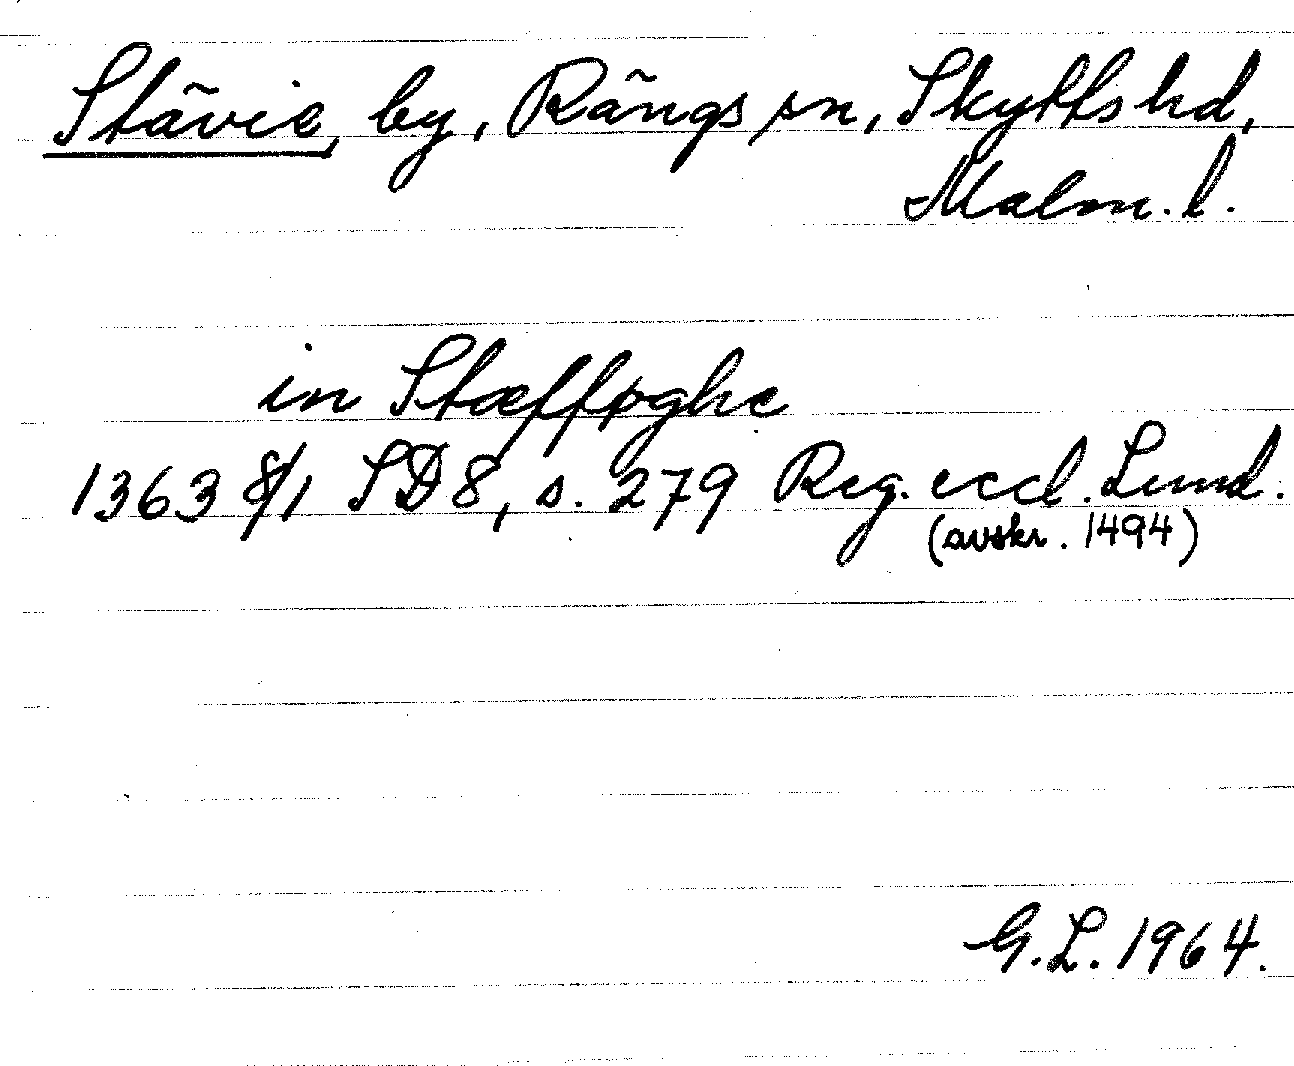 Stävie, by, Rängs sn, Skytts hd,
Malm. l.
in Stæfføghe
1363 8/1 SD 8, s. 279 Reg. eccl. Lund.
(avskr. 1494)
G.L. 1964.